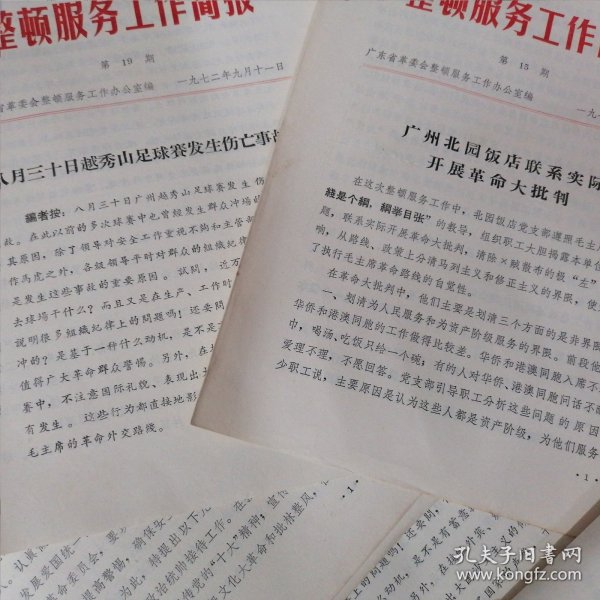 整顿服务工作简报
第 19 期
省革委会整顿服务工作办公室编
一九七二年九月十一日
八月三十日越秀山足球赛发生伤亡事故
编者按：八月三十日广州越秀山足球赛发生伤
故。在此以前的多次球赛中也曾经发生群众冲场的
其原因，除了领导对安全工作重视不夠和主管部
作馬虎之外，各级领导平时对群众的组织纪律
是发生这些事故的重要原因。试問，近万
去球場干什么？而且又是在生产、工作时
说明很多组织纪律上的問题嗎！还要問
冲的？是基于一种什么动机，是不是
值得广大革命群众警惕。另外，在
赛中，不注意国际礼貌、表现出大
有发生。这些行为都直接地影
毛主席的革命外交路线。
·1·
整顿服务工作
第 15 期
广东省革委会整顿服务工作办公室编
一九七
广州北园饭店联系实际
开展革命大批判
在这次整顿服务工作中，北园饭店党支部遵照毛主
綫是个綱，綱举目张”的教导，组织职工大胆揭露本单位
题，联系实际开展革命大批判，清除×贼散布的极“左”
响，从路线、政策上分清马列主义和修正主义的界限，使
了执行毛主席革命路线的自觉性。
在革命大批判中，他们主要是划清三个方面的是非界限
一、划清为人民服务和为资产阶级服务的界限。前段他
华侨和港澳同胞的工作做得比较差。华侨和港澳同胞入席不
中，喝汤、吃饭只给一个碗；有的人对华侨、港澳同胞问话不
爱理不理，不愿回答。党支部引导职工分析这些问题的原因
少职工说，主要原因是认为这些人都是资产阶级，为他们服务
·1·
发展爱国统一
革命委员会，要
提高警惕，确保安
为此，特提出以下几
政治统帅接待工作。在
传党的“十大”精神；宣传
文化大革命和批林整风，
孔夫子旧书网
www.kongfz.com